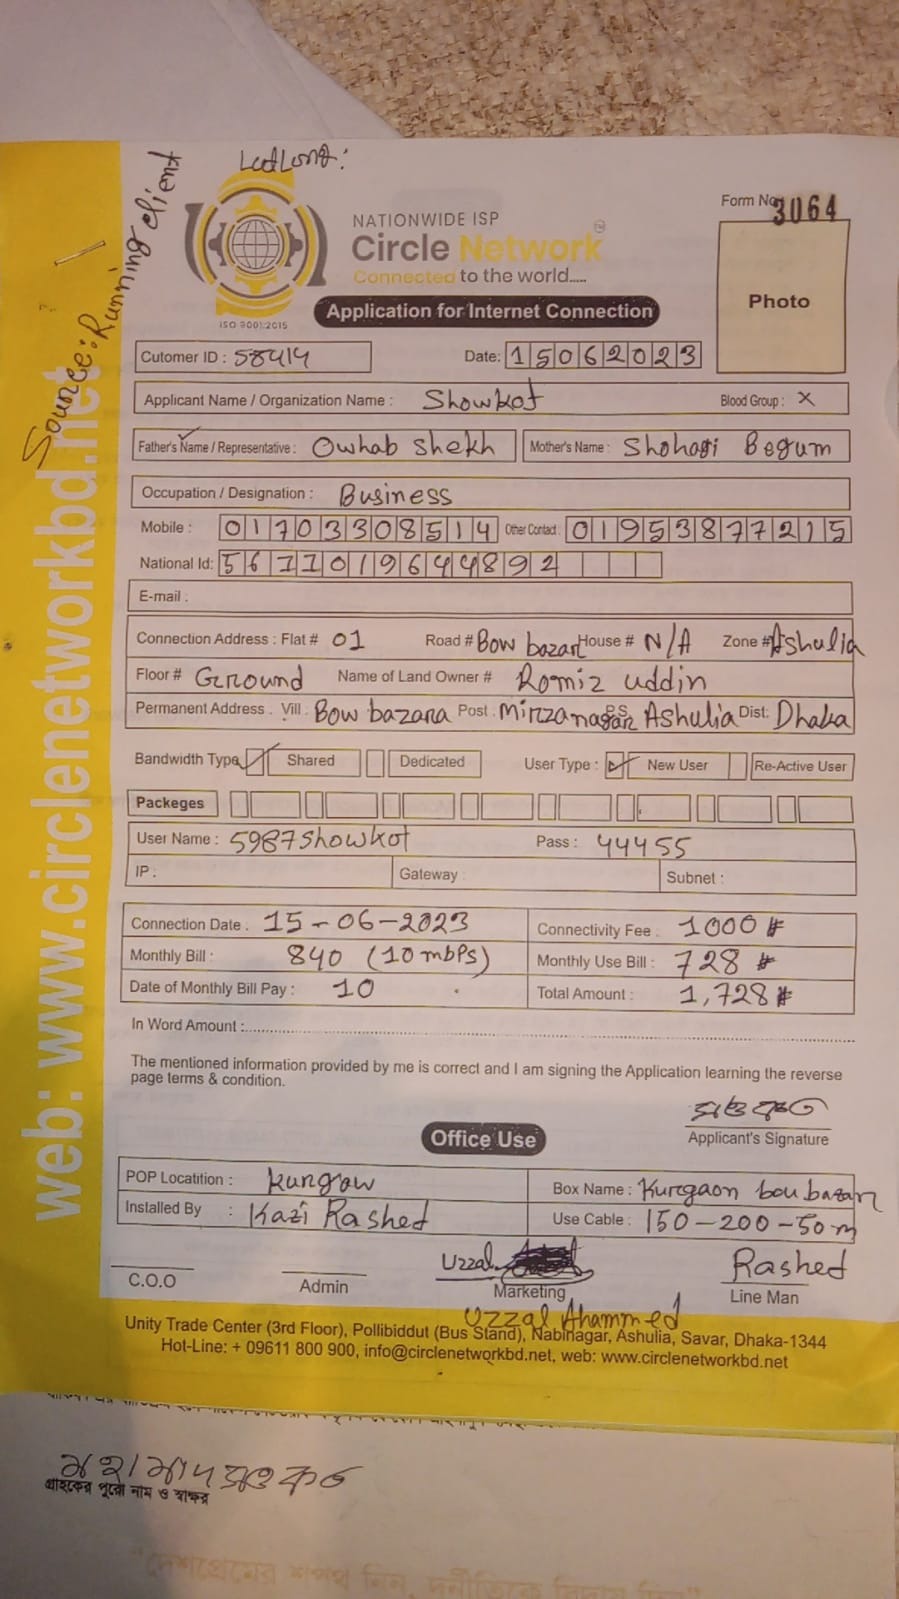 LatLong:
Source: Running client
NATIONWIDE ISP
Circle Network TM
Connected to the world.....
ISO 9001:2015
Application for Internet Connection
Form No. 3064
Photo
Cutomer ID : 58414 Date: 15062023
Applicant Name / Organization Name : Showkot Blood Group : X
Father's Name / Representative : Owhab Shekh Mother's Name : Shohagi Begum
Occupation / Designation : Business
Mobile : 01703308514 Other Contact : 01953877215
National Id: 56711019644892
E-mail :
Connection Address : Flat # 01 Road # Bow bazar House # N/A Zone # Ashulia
Floor # Ground Name of Land Owner # Romiz uddin
Permanent Address . Vill. Bow bazara Post : Mirzanagar P.S. Ashulia Dist: Dhaka
Bandwidth Type Shared Dedicated User Type : New User Re-Active User
Packeges
User Name : 5987Showkot Pass : 44455
IP : Gateway : Subnet :
Connection Date : 15-06-2023 Connectivity Fee : 1000 #
Monthly Bill : 840 (10 mbps) Monthly Use Bill : 728 #
Date of Monthly Bill Pay : 10 Total Amount : 1,728 #
In Word Amount :
The mentioned information provided by me is correct and I am signing the Application learning the reverse
page terms & condition.
শওকত
Applicant's Signature
Office Use
POP Locatition : kurgow Box Name : Kurgaon bou bazar
Installed By : Kazi Rashed Use Cable : 150-200-50m
Uzzal Rashed
C.O.O Admin Marketing Line Man
Uzzal Ahammed
Unity Trade Center (3rd Floor), Pollibiddut (Bus Stand), Nabinagar, Ashulia, Savar, Dhaka-1344
Hot-Line: + 09611 800 900, info@circlenetworkbd.net, web: www.circlenetworkbd.net
web: www.circlenetworkbd.net
মহামাদ শওকত
গ্রাহকের পুরো নাম ও স্বাক্ষর
"দেশপ্রেমের শপথ নিন, দুর্নীতিকে বিদায় দিন"